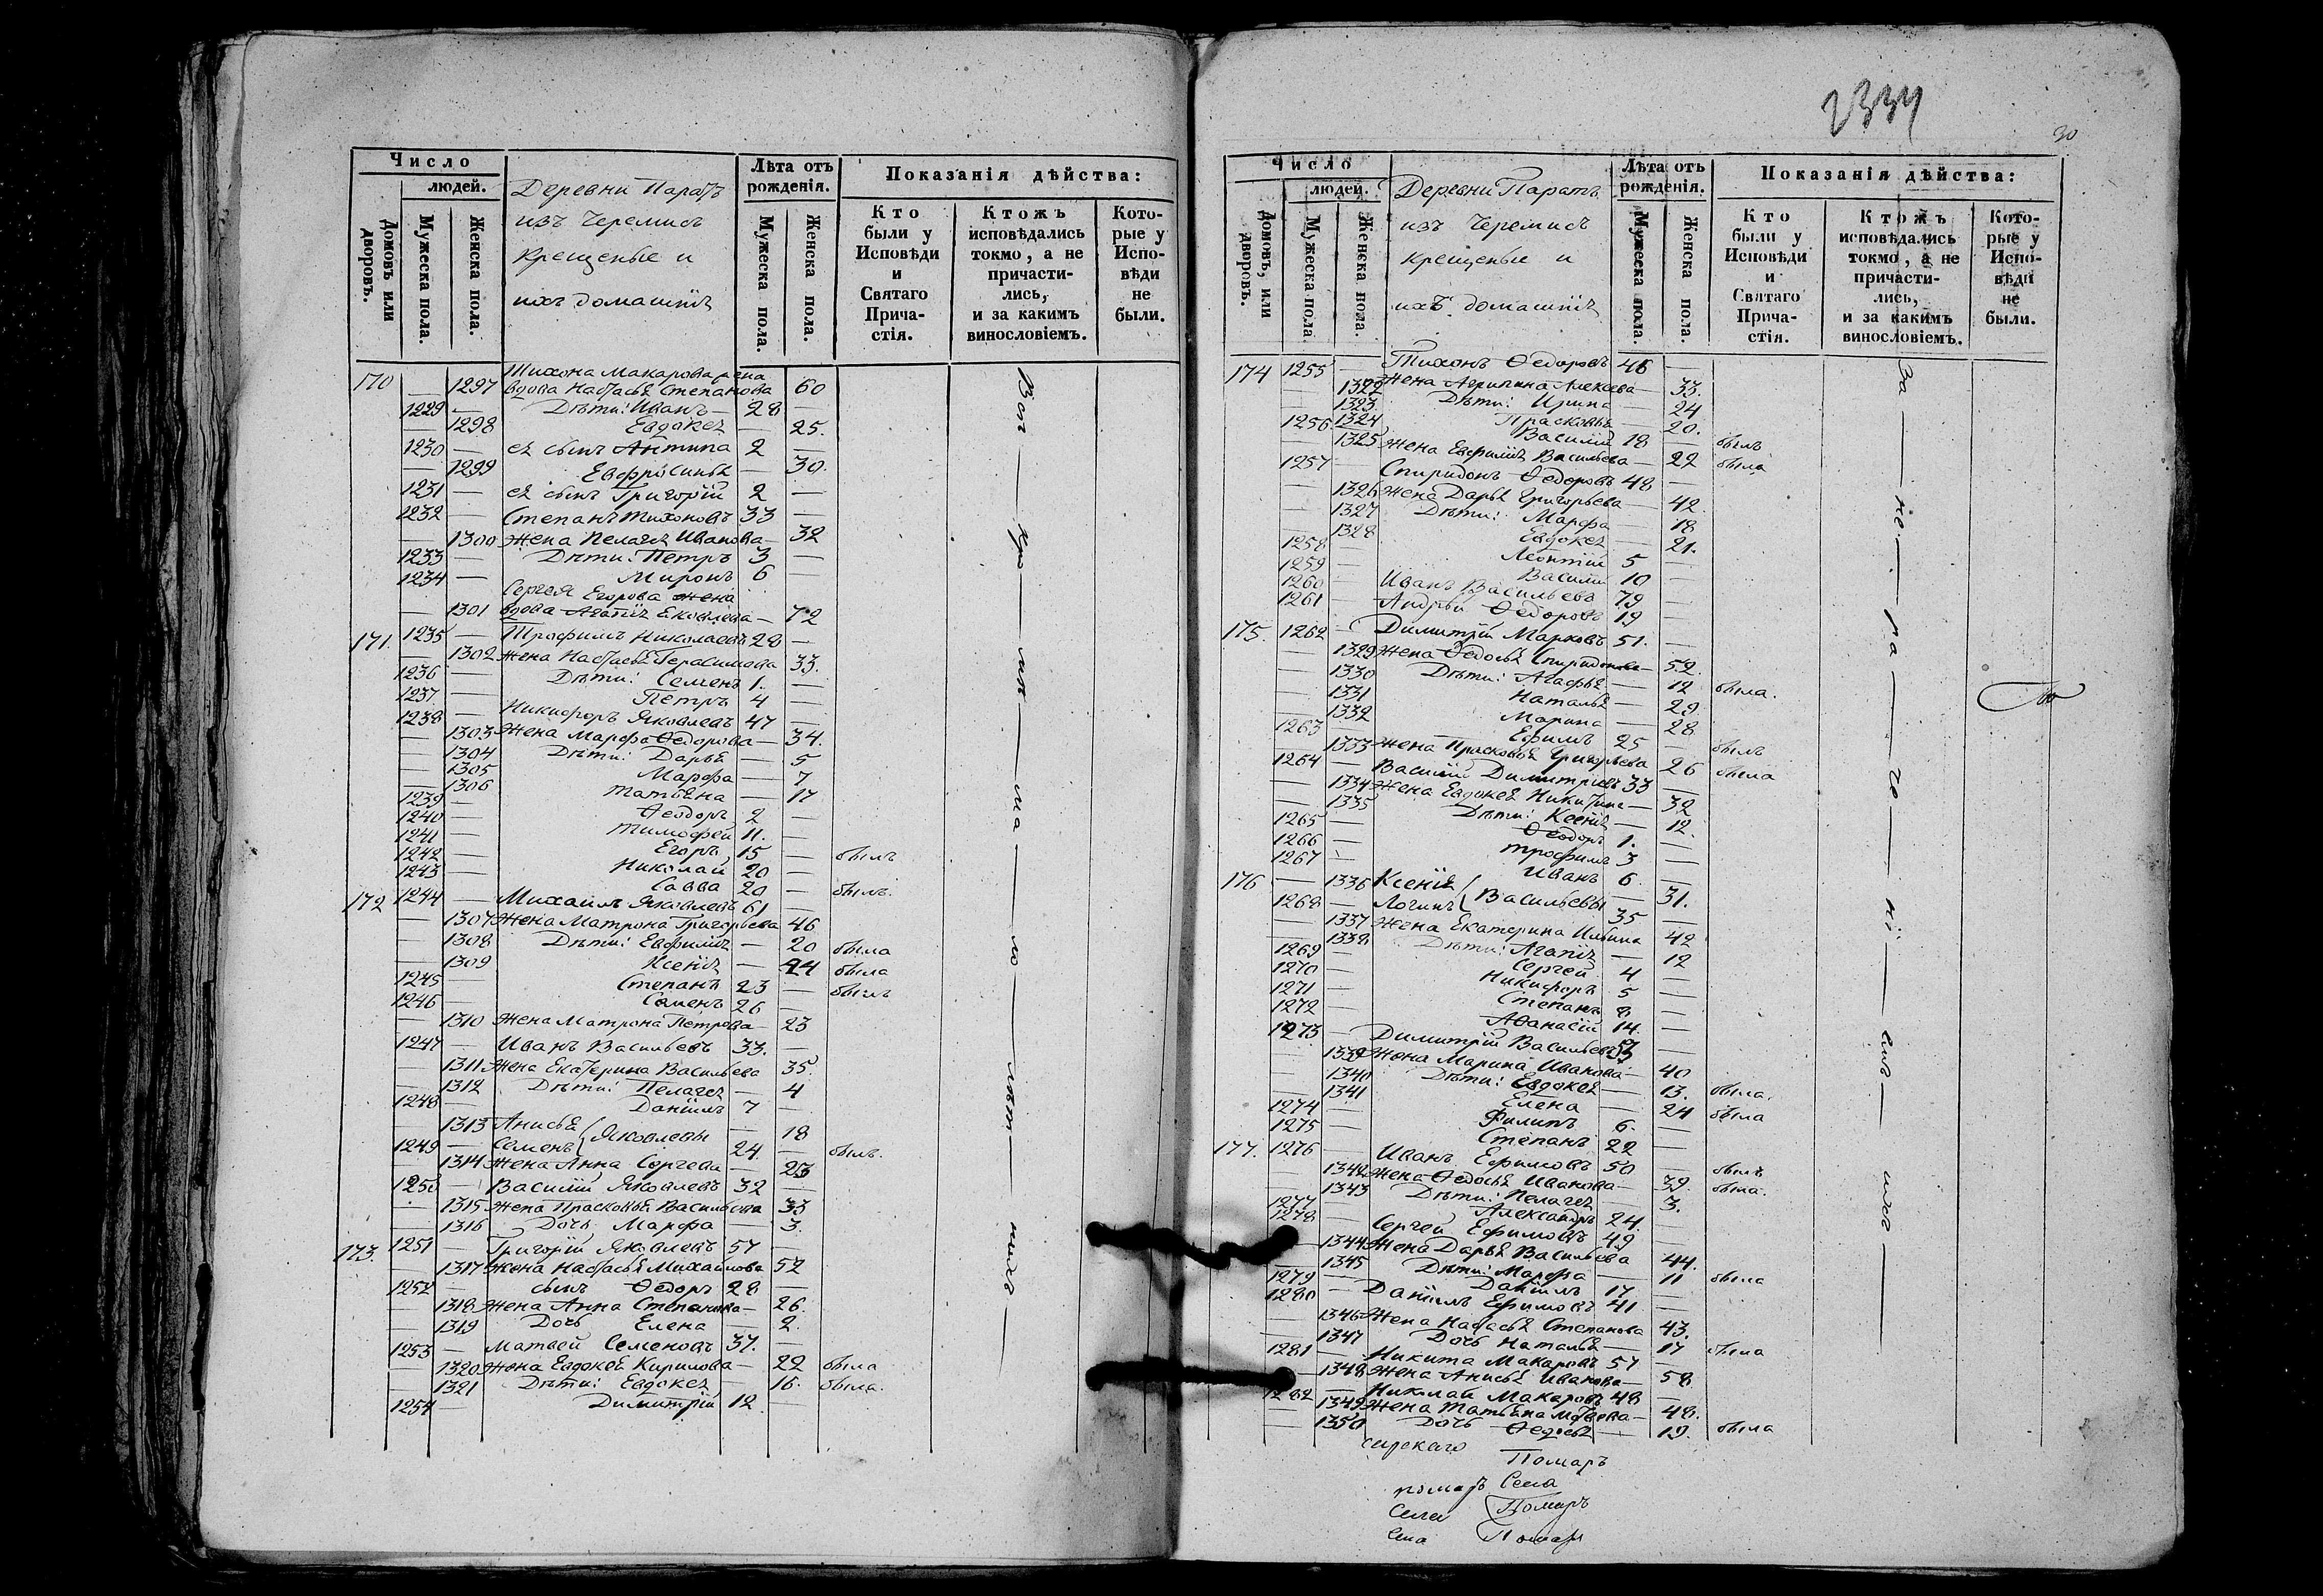 Число
людей.
Домовъ или дворовъ.
Мужеска пола.
Женска пола.
Деревни Паратъ
изъ Черемисъ
крещеные и
ихъ домашніе
Лѣта отъ рожденія.
Мужеска пола.
Женска пола.
Показанія дѣйства:
Кто были у Исповѣди и Святаго Причастія.
Ктожъ исповѣдались токмо, а не причастились, и за какимъ винословіемъ.
Которые у Исповѣди не были.
Тихона Макарова жена
170 — 1297 вдова Настасья Степанова 60
1229 — Дѣти: Иванъ — 28 —
— 1298 Евдокея — 25.
1230 — ея сынъ Антипа 2 —
— 1299 Евфросинья — 30.
1231 — ея сынъ Григорій 2 —
1232 — Степанъ Тихоновъ 33 —
— 1300 Жена Пелагея Иванова — 32
1233 — Дѣти: Петръ 3 —
1234 — Миронъ 6 —
Сергея Егорова жена
— 1301 вдова Агапія Яковлева — 72
171. 1235 — Трофимъ Николаевъ 28 —
— 1302 Жена Настасья Герасимова 33.
1236 — Дѣти: Семенъ 1. —
1237 — Петръ 4 —
1238 — Никифоръ Яковлевъ 47 —
— 1303 Жена Марфа Ѳедорова — 34.
— 1304 Дѣти: Дарья — 5
— 1305 Марфа — 7
— 1306 Татьяна — 17
1239 — Ѳеодоръ 2 —
1240 — Тимофей 11. —
1241 — Егоръ 15 — былъ
1242 — Николай 20 —
1243 — Савва 20 — былъ.
172 1244 — Михаилъ Яковлевъ 61 —
— 1307 Жена Матрона Григорьева 46
— 1308 Дѣти: Евфимія — 20 была
— 1309 Ксенія — 24 была
1245 — Степанъ 23 — былъ
1246 — Семенъ 26 —
— 1310 Жена Матрона Петрова — 23
1247 — Иванъ Васильевъ 33. —
— 1311 Жена Екатерина Васильева 35.
— 1312 Дѣти: Пелагея — 4
1248 — Даніилъ 7 —
— 1313 Анисья } Яковлевы — 18
1249 — Семенъ 24. — былъ.
— 1314 Жена Анна Сергева — 23
1250 — Василій Яковлевъ 32 —
— 1315 Жена Прасковья Васильева 33
— 1316 Дочь Марфа — 3.
173. 1251 — Григорій Яковлевъ 57 —
— 1317 Жена Настасья Михайлова 52
1252 — сынъ Ѳедоръ 28 —
— 1318 Жена Анна Степанова — 26.
— 1319 Дочь Елена — 2.
1253 — Матвей Семеновъ 37. —
— 1320 Жена Евдокея Кирилова — 22 была
— 1321 Дѣти: Евдокея — 16. была.
1254 — Димитрій 12 —
30
Число
людей.
Домовъ, или дворовъ.
Мужеска пола.
Женска пола.
Деревни Паратъ
изъ Черемисъ
крещеные и
ихъ домашніе
Лѣта отъ рожденія.
Мужеска пола.
Женска пола.
Показанія дѣйства:
Кто были у Исповѣди и Святаго Причастія.
Ктожъ исповѣдались токмо, а не причастились, и за какимъ винословіемъ.
Которые у Исповѣди не были.
174 1255 — Тихонъ Ѳедоровъ 46 —
— 1322 Жена Агрипина Алексева — 33.
— 1323 Дѣти: Ирина — 24
— 1324 Прасковья — 20.
1256 — Василій 18 — былъ
— 1325 Жена Евфимія Васильева — 22 была
1257 — Спиридонъ Ѳедоровъ 48 —
— 1326 Жена Дарья Григорьева — 42
— 1327 Дѣти: Марфа — 18
— 1328 Евдокея — 21.
1258 — Леонтій 5 —
1259 — Василій 10 —
1260 — Иванъ Васильева 79 —
1261 — Андрей Ѳедоровъ 19 —
175. 1262 — Димитрій Марковъ 51. —
— 1329 Жена Ѳедосья Спиридонова — 52.
— 1330 Дѣти: Агафья — 12 была.
— 1331 Наталья — 29
— 1332 Марина — 28
1263 — Ефимъ 25 — былъ
— 1333 Жена Прасковья Григорьева 26 была
1264 — Василій Димитріевъ 33 —
— 1334 Жена Евдокея Никитина — 32
— 1335 Дѣти: Ксенія — 12.
1265 — Ѳеодоръ 1. —
1266 — Трофимъ 3 —
1267 — Иванъ 6 —
176 — 1336 Ксенія { Васильевы — 31.
1268 — Логинъ 35 —
— 1337 Жена Екатерина Ильина 42
— 1338 Дѣти: Агапія — 12
1269 — Сергей 4 —
1270 — Никифоръ 5 —
1271 — Степанъ 8 —
1272 — Аѳанасій 14. —
1273 — Димитрій Васильевъ —
— 1339 Жена Марина Иванова — 40
— 1340 Дѣти: Евдокея — 13. была.
— 1341 Елена — 24 была
1274 — Филипъ 6. —
1275 — Степанъ 22 —
177. 1276 — Иванъ Ефимовъ 50 — былъ
— 1342 Жена Ѳедосья Иванова — 39. была.
— 1343 Дѣти: Пелагея — 3.
1277 — Александръ 24. —
1278 — Сергей Ефимовъ 49 —
— 1344 Жена Дарья Васильева 44.
— 1345 Дѣти: Марфа — 11 была
1279 — Даніилъ 17 —
1280 — Даніилъ Ефимовъ 41 —
— 1346 Жена Настасья Степанова 43.
— 1347 Дочь Наталья — 17 была
1281 — Никита Макаровъ 57 —
— 1348 Жена Анисья Иванова — 58
1282 — Николай Макаровъ 48 —
— 1349 Жена Татьяна Матвева — 48.
— 1350 Дочь Ѳедосья — 19. была
Помаръ
помаръ Села
Села Помаръ
Села Помаръ